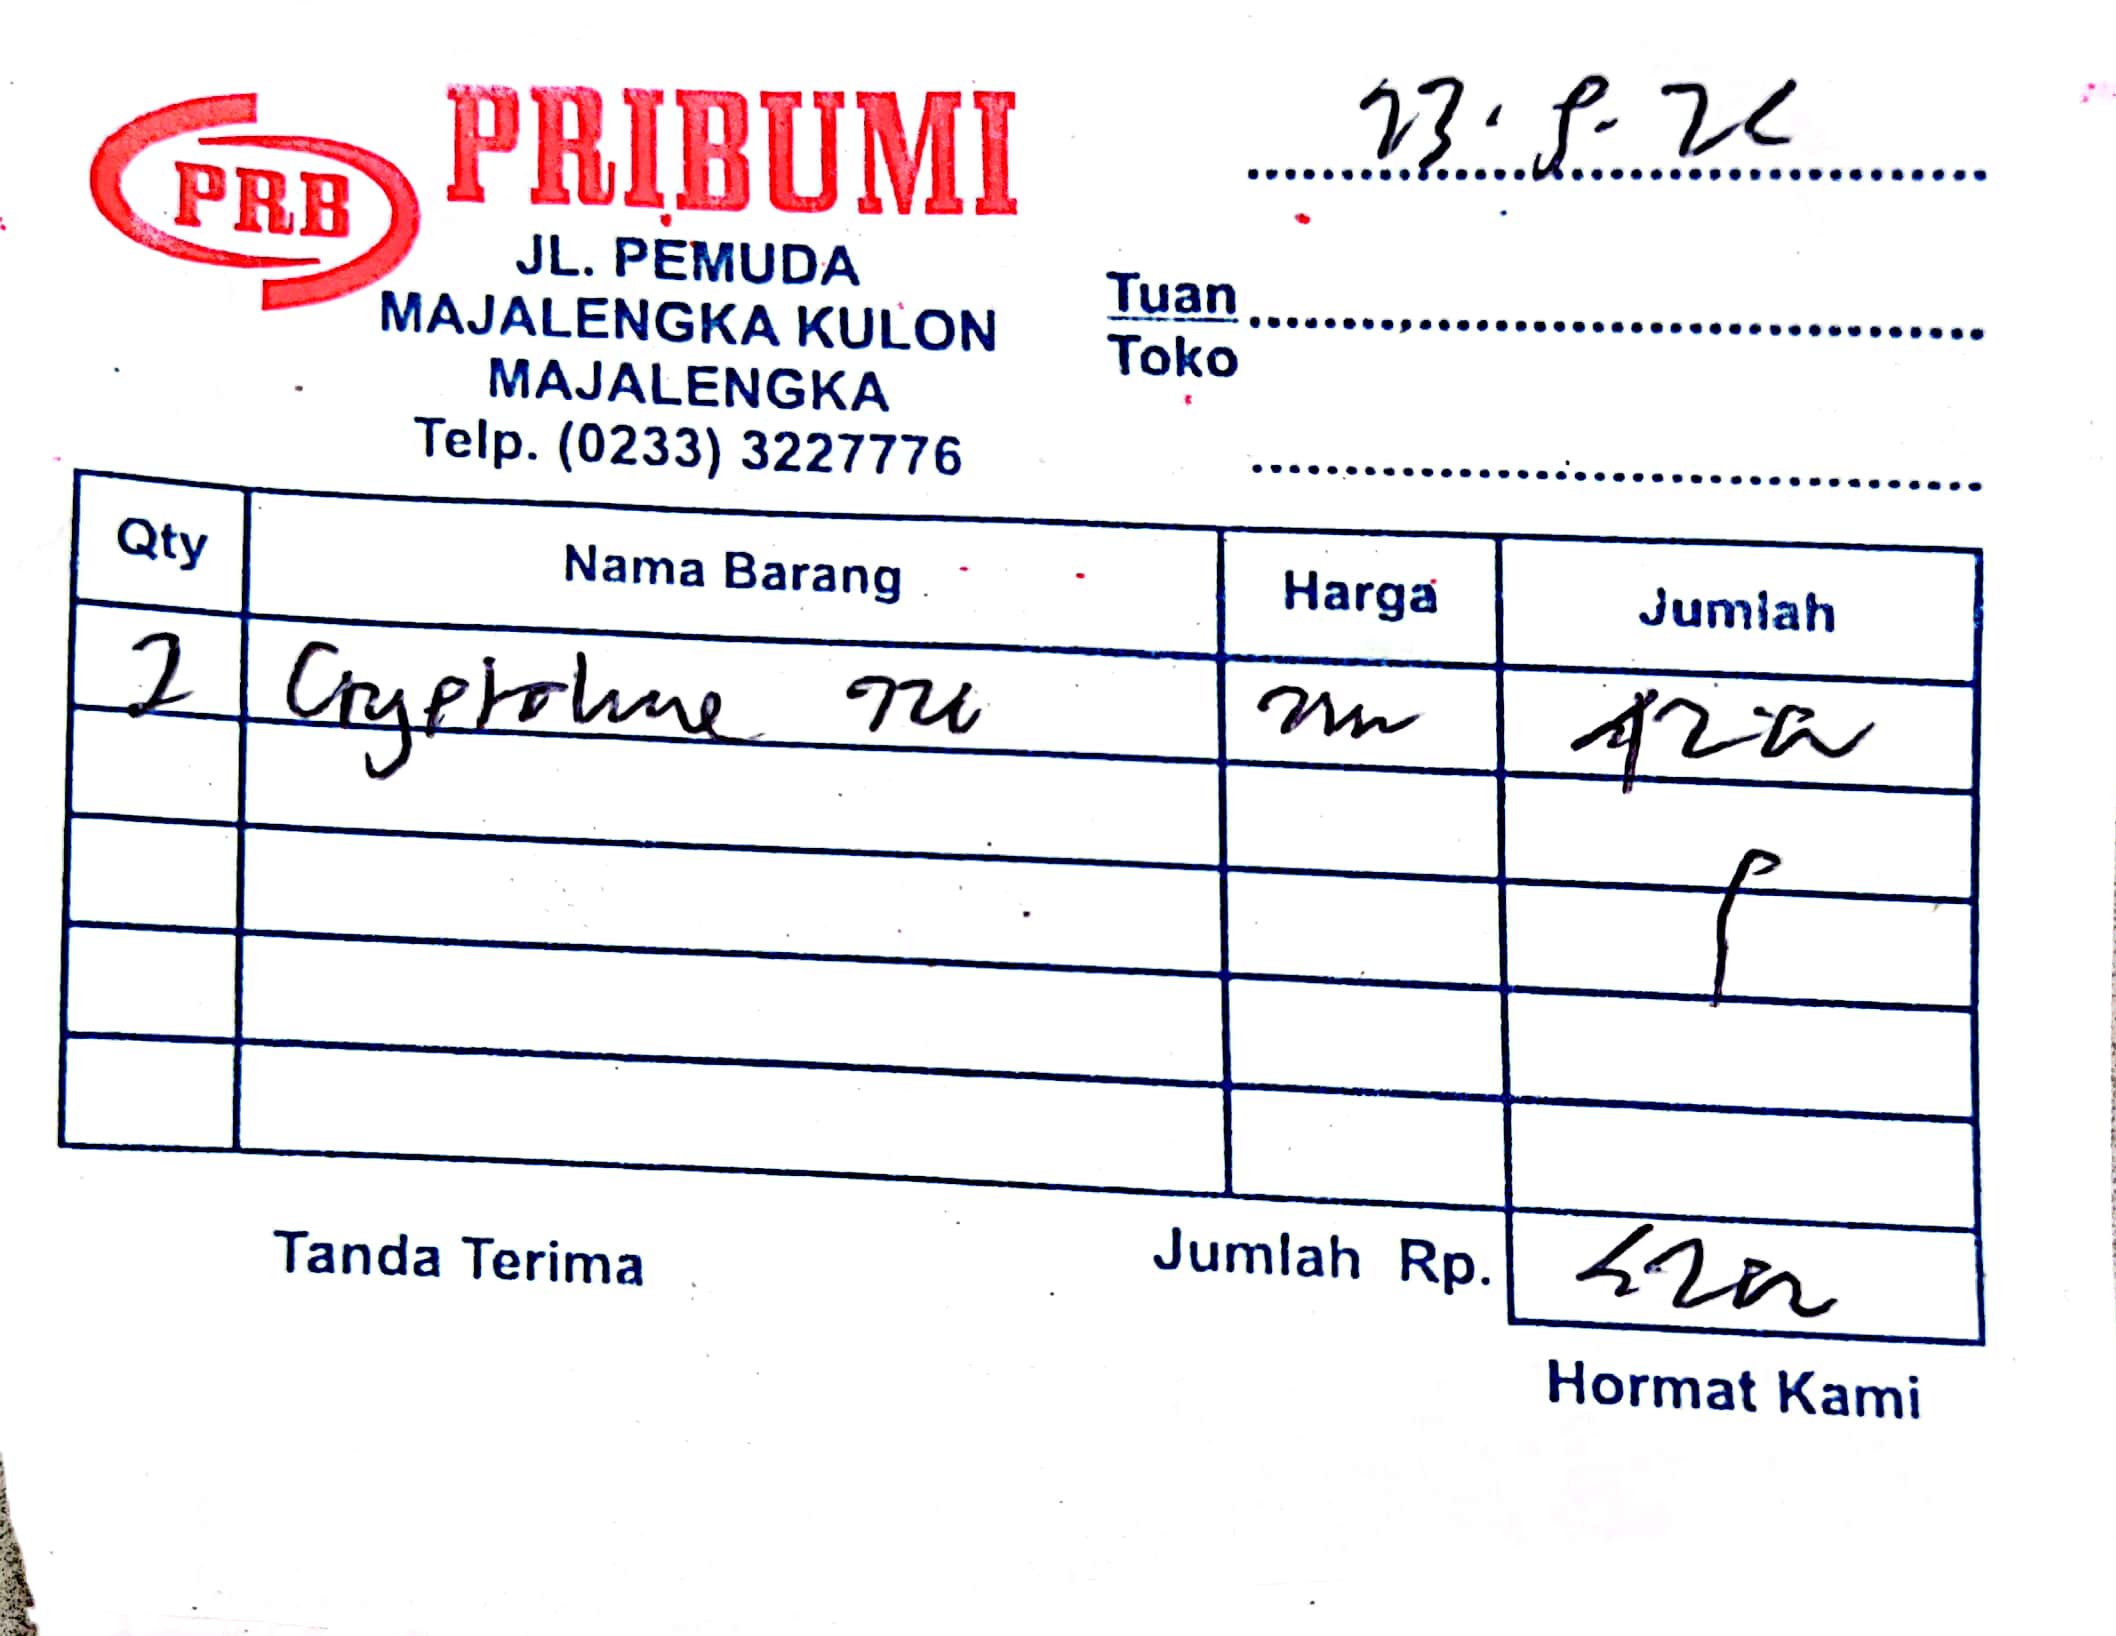 PRB
PRIBUMI
JL. PEMUDA
MAJALENGKA KULON
MAJALENGKA
Telp. (0233) 3227776
Tuan
Toko
Qty Nama Barang Harga Jumlah
2
Tanda Terima Jumlah Rp.
Hormat Kami